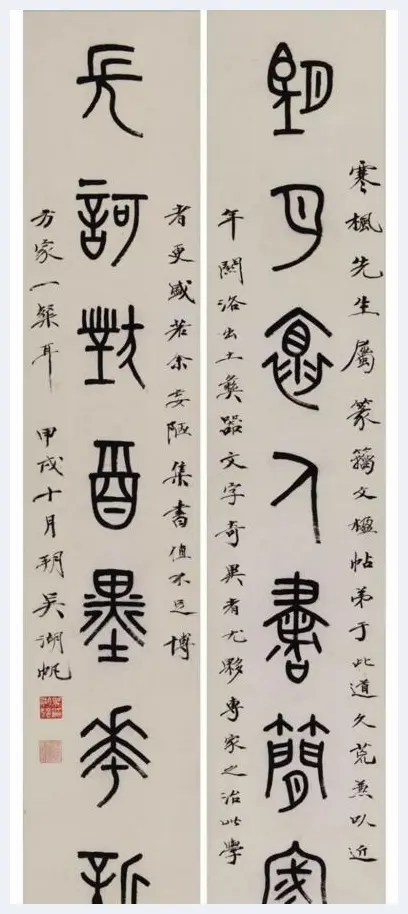 寒楓先生屬篆籀文楹帖弟于此道久荒兼以近
月入書簡
年關洛出土彝器文字奇異者尤夥專家之治此學
者更盛若余妄陋集書值不足博
長訶對酉墨華新
方家一粲耳 甲戌十月朔吳湖帆